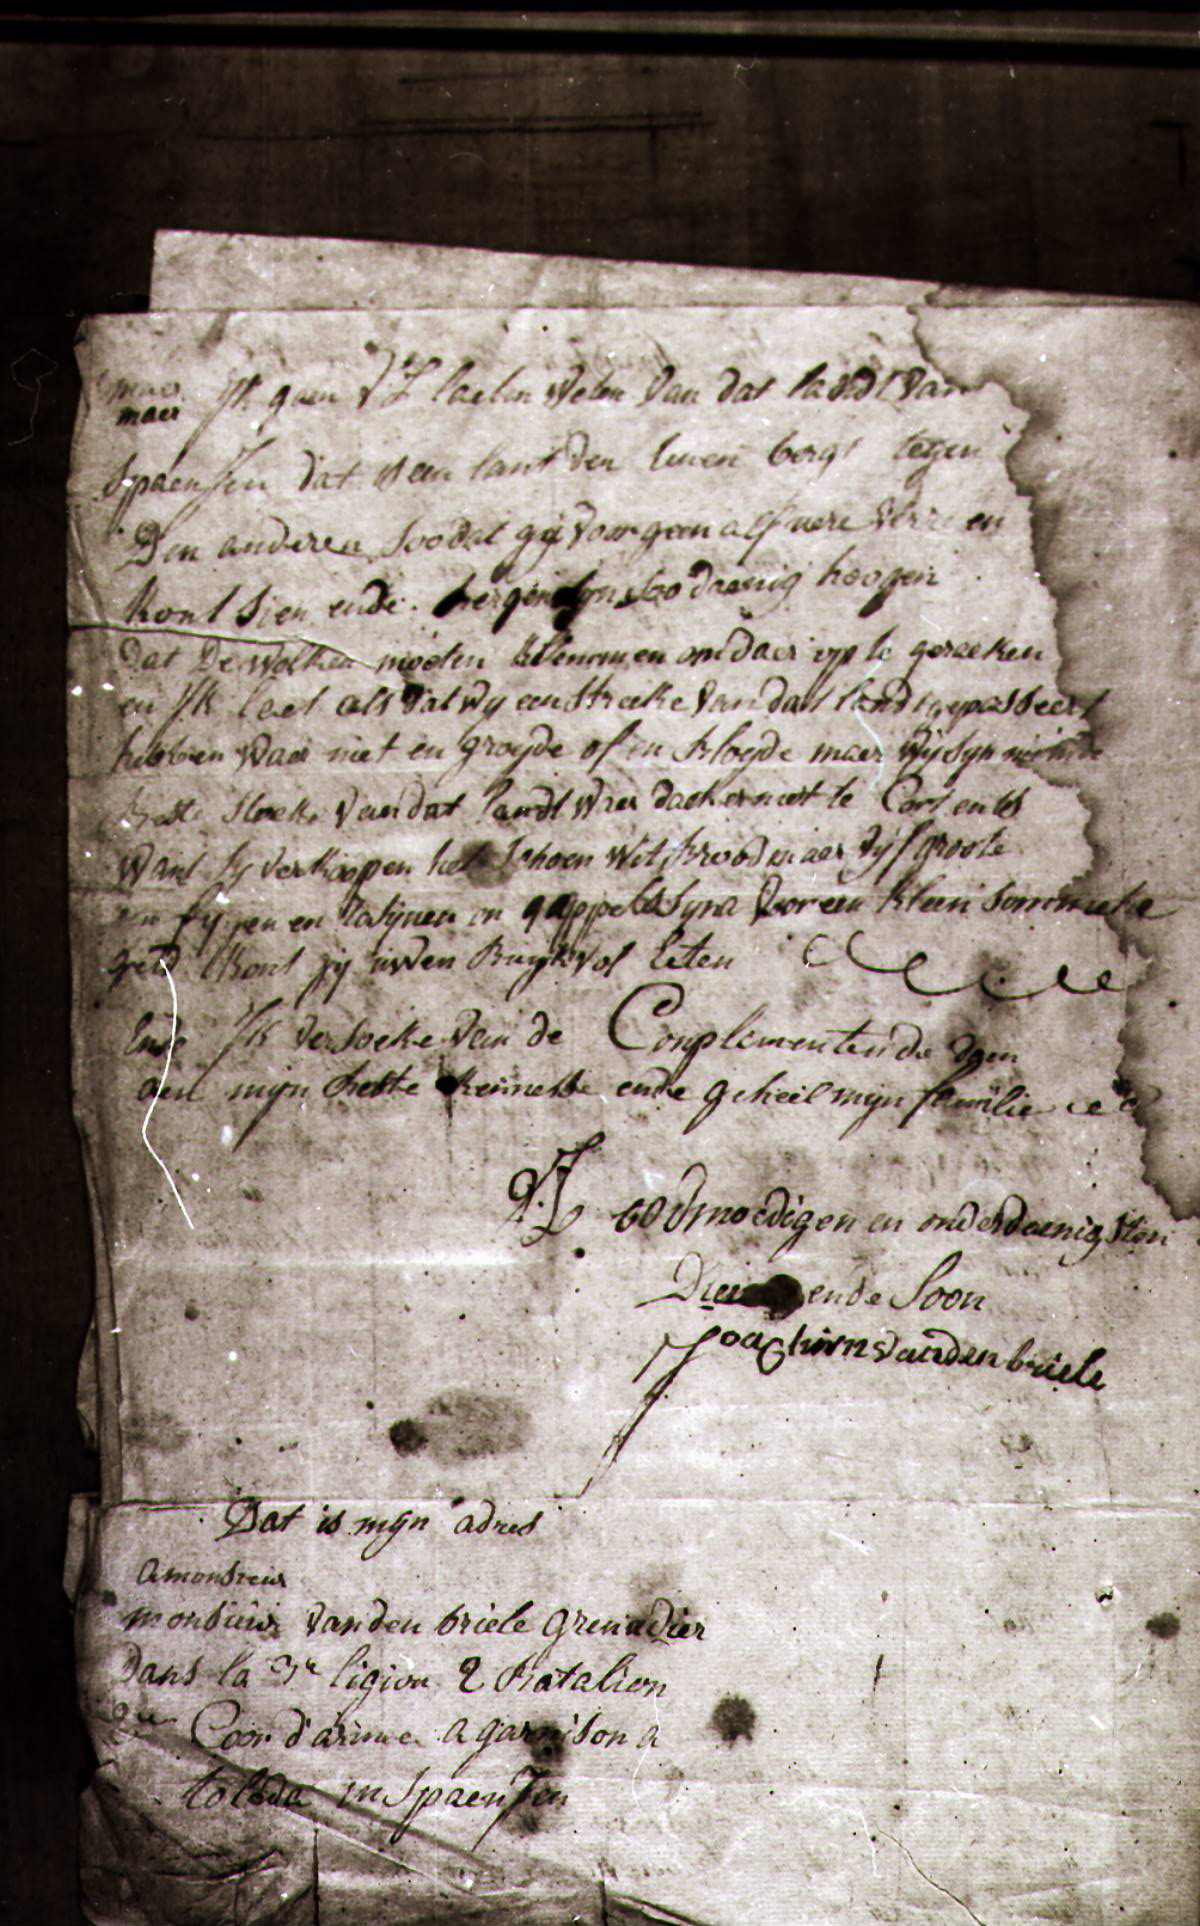 maer Ik gaen UL laeten weten van dat landt van
Spaenjen dat is een lant den eenen bergt tegen
Den anderen soodat gij voor geen alf uere verre en
kont sien ende bergen syn soo daenig hoogen
Dat De wolken moeten klemmen om daer op te geraeken
en Ik laet als dat wy een streeke van dat landt gepasseert
hebben waer niet en groyde of en bloyde maer wij syn
beste streeke van dat landt waer daeter niet te Cort en is
want sy verkoopen het schoon wit broodt maer vijf groote
en fygen en rasynen en appelsyna voor een kleen sommeke
geld kont jy uwen Buyk vol Eten
Ende Ik versoeke van de Conplimenten de doen
aen mijn beste kennesse ende geheel mijn familie
UL oodmoedigen en onderdaenigsten
Dienende Soon
Joachim vanden briele
Dat is mijn adres
a monsieur
monsieur vanden briele Grenadier
Dans la 3e ligion 2 Batalion
2me Coor d'armee a garnison a
toleda in Spaenjen